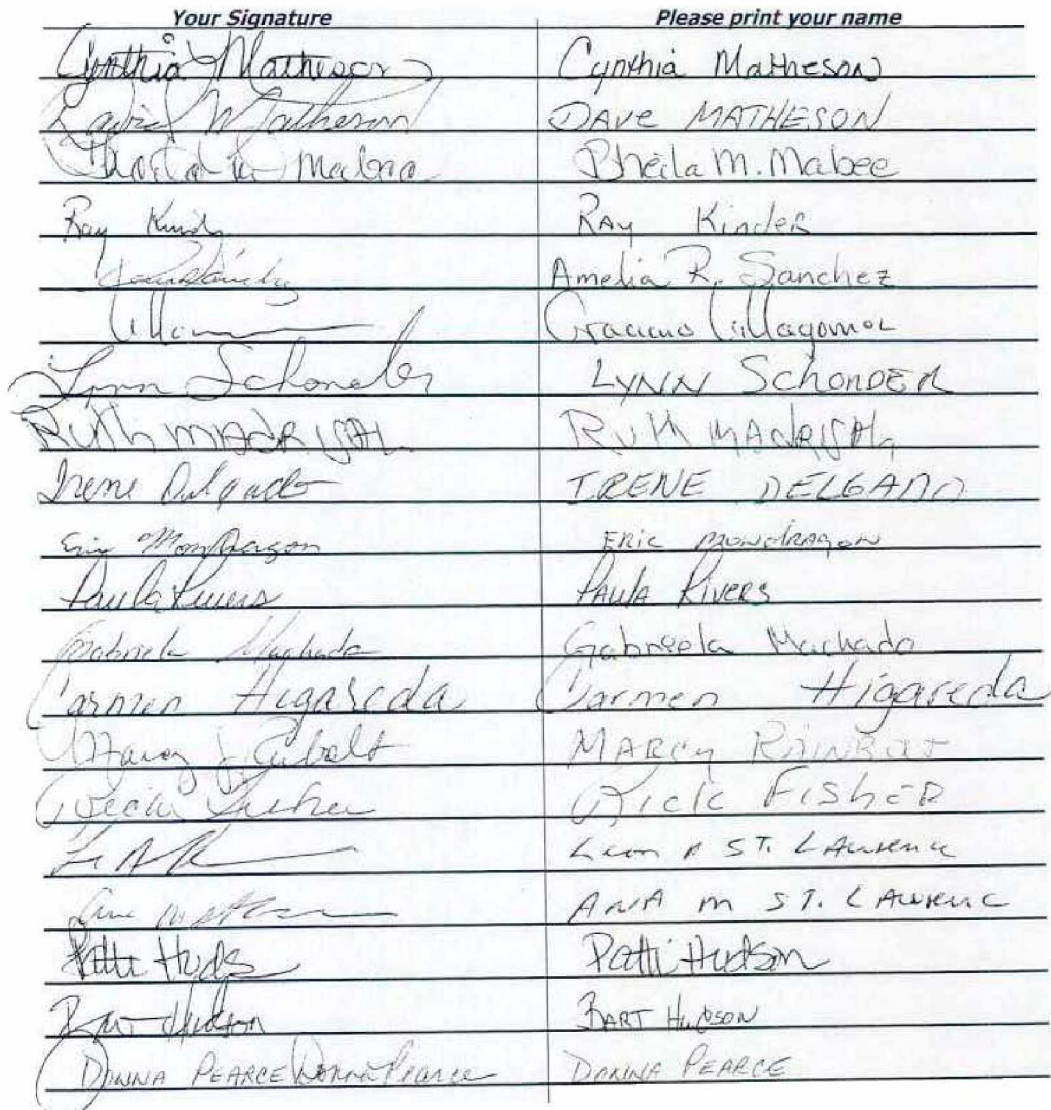 Your Signature Please print your name
Cynthia J Matheson Cynthia Matheson
David W Matheson DAVE MATHESON
Mabee Sheila M. Mabee
Ray Kinder RAY Kinder
Amelia R. Sanchez
Villagomez
Lynn Schonder LYNN SCHONDER
RUth MADRIGAL RUth MADRIGAL
Irene Delgado IRENE DELGADO
Eric Mondragon ERIC MONDRAGON
Paula Rivers PAULA RIVERS
Gabriela Machado Gabriela Machado
Carmen Higareda Carmen Higareda
Marcy J MARCY
Fisher Rick FISHER
Leon R ST. LAWRENCE
ANA M ST. LAWRENCE
Patti Hudson Patti Hudson
Bart Hudson BART HUDSON
DONNA PEARCE Donna Pearce DONNA PEARCE